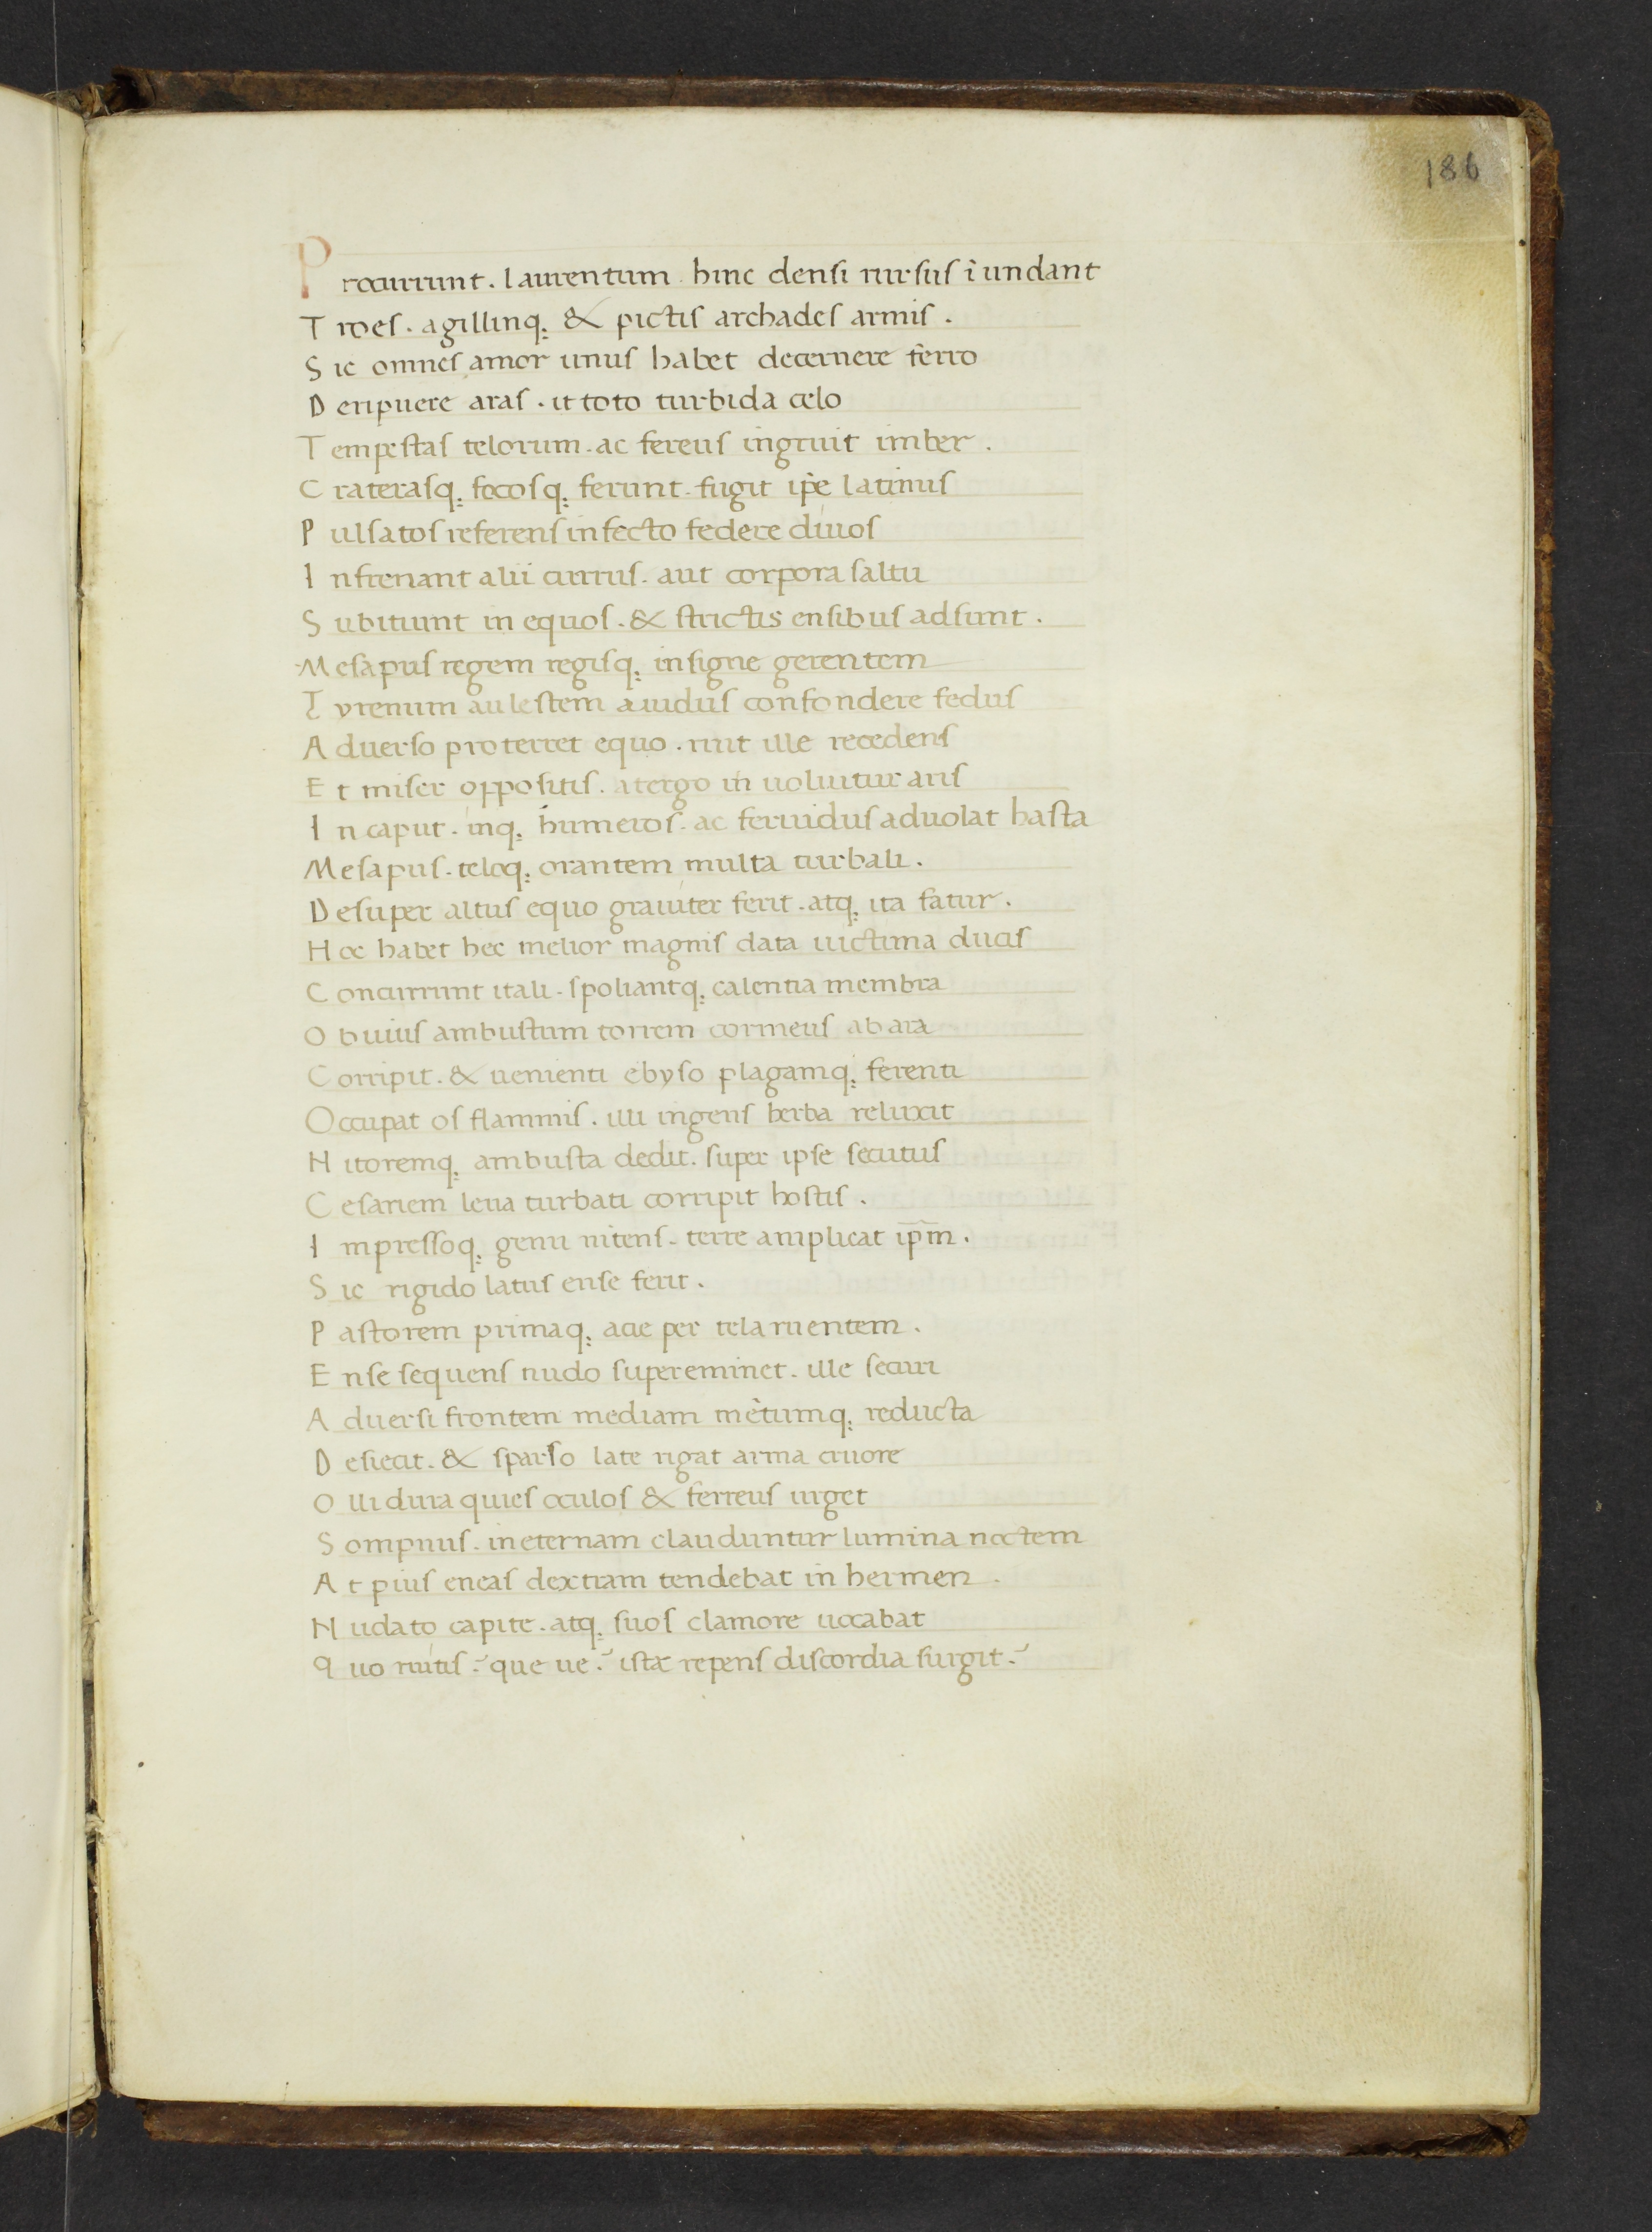 186
Procurrunt. laurentum. hinc densi rursus īundant
Troes. agillinq; & pictis archades armis.
Sic omnes amor unus habet decernere ferro
Deripuere aras. it toto turbida celo
Tempestas telorum. ac fereus ingruit imber.
Craterasq; focosq; ferunt. fugit ip̄e latinus
Pulsatos referens infecto federe diuos
Infrenant alii currus. aut corpora saltu
Subitiunt in equos. & strictis ensibus adsunt.
Mesapus regem regisq; insigne gerentem
Tyrenum aulestem auidus confondere fedus
Aduerso proterret equo. ruit ille recedens
Et miser oppositis. atergo in uoluitur aris
In caput. inq; humeros. ac feruidus aduolat hasta
Mesapus. teloq; orantem multa turbali.
Desuper altus equo grauiter ferit. atq; ita fatur.
Hoc habet hec melior magnis data uictima ducis
Concurrunt itali. spoliantq; calentia membra
Obuius ambustum torrem cormeus ab ara
Corripit. & uenienti ebyso plagamq; ferenti
Occupat os flammis. illi ingens berba reluxit
Nitoremq; ambusta dedit. super ipse secutus
Cesariem leua turbati corripit hostis.
Impressoq; genu nitens. terre amplicat ip̄m.
Sic rigido latus ense ferit.
Pastorem primaq; acie per tela ruentem.
Ense sequens nudo supereminet. ille securi
Aduersi frontem mediam mētumq; reducta
Desiecit. & sparso late rigat arma cruore
Olli dura quies oculos & ferreus urget
Sompnus. in eternam clauduntur lumina noctem
At pius eneas dextram tendebat in hermen.
Nudato capite. atq; suos clamore uocabat
Quo ruitis? que ue? istæ repens discordia surgit?